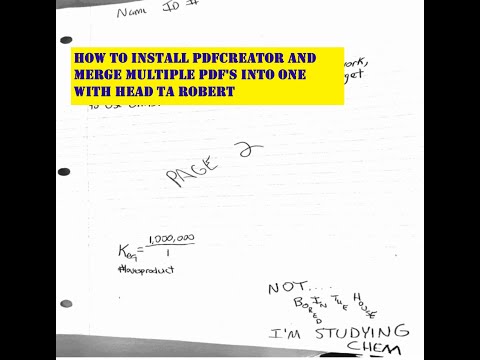 Name ID #
HOW TO INSTALL PDFCREATOR AND
MERGE MULTIPLE PDF'S INTO ONE
WITH HEAD TA ROBERT
get
PAGE 2
1,000,000
Keq =
1
NOT....
BORED IN THE HOUSE
I'M STUDYING
CHEM